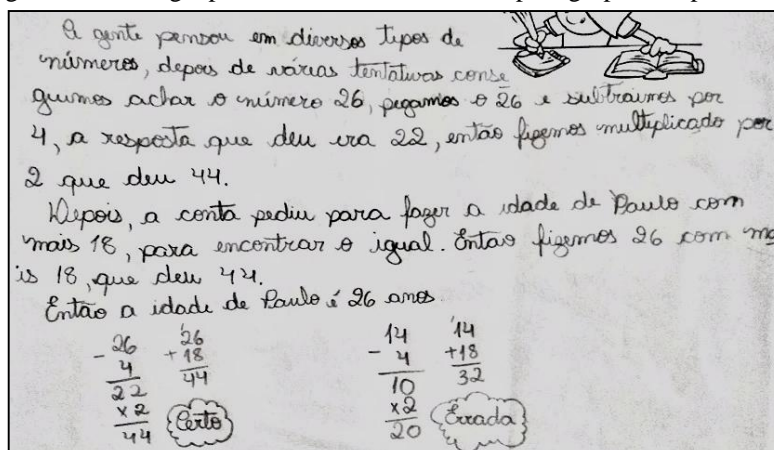 A gente pensou em diversos tipos de
números, depois de várias tentativas conse
guimos achar o número 26, pegamos o 26 e subtraimos por
4, a resposta que deu era 22, então fizemos multiplicado por
2 que deu 44.
Depois, a conta pediu para fazer a idade de Paulo com
mais 18, para encontrar o igual. Então fizemos 26 com ma
is 18, que deu 44.
Então a idade de Paulo é 26 anos.
- 26 1 26 14 1 14
4 + 18 - 4 + 18
22 44 10 32
x 2 Certo x 2 Errada
44 20